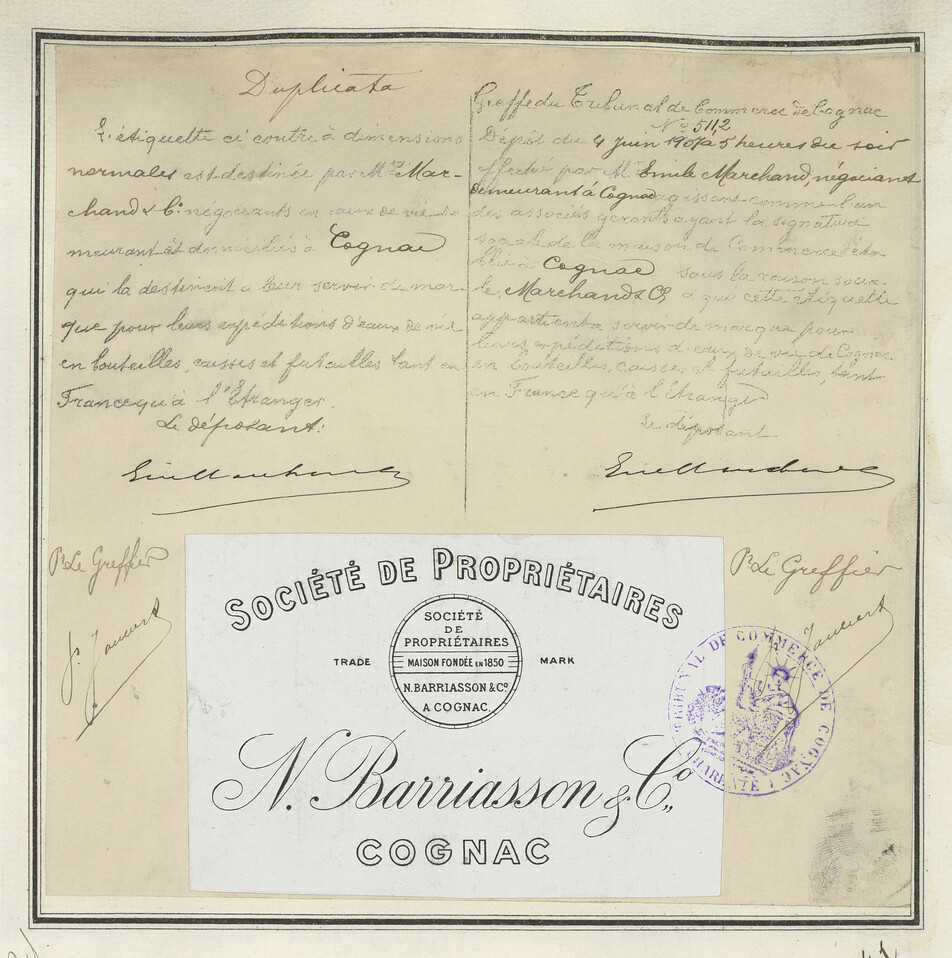 Duplicata
L'étiquette ci contre à dimensions
normales est destinée par Mrs Mar-
chand & Co. négociants en eaux de vie de
meurant et domiciliés à Cognac
qui la destinent à leur servir de mar-
que pour leurs expéditions d'eaux de vie
en bouteilles, caisses et futailles tant en
France qu'à l'Etranger.
Le déposant:
Greffe du Tribunal de Commerce de Cognac
No 5112
Dépôt du 4 Juin 1901 à 5 heures du soir
effectué par Mr Emile Marchand, négociant
demeurant à Cognac agissant comme l'un
des associés gérants ayant la signature
sociale de la maison de Commerce éta
blie à Cognac sous la raison socia-
le, Marchand & Co, à qui cette étiquette
appartient à servir de marque pour
leurs expéditions d'eaux de vie de Cognac
en bouteilles, caisses et futailles, tant
en France qu'à l'Etranger
Le déposant
Pr Le Greffier
Pr Le Greffier
SOCIÉTÉ DE PROPRIÉTAIRES
SOCIÉTÉ
DE
PROPRIÉTAIRES
TRADE MAISON FONDÉE EN 1850 MARK
N. BARRIASSON & Co
A COGNAC.
N. Barriasson & Co.,,
COGNAC
TRIBUNAL DE COMMERCE DE COGNAC
(CHARENTE)